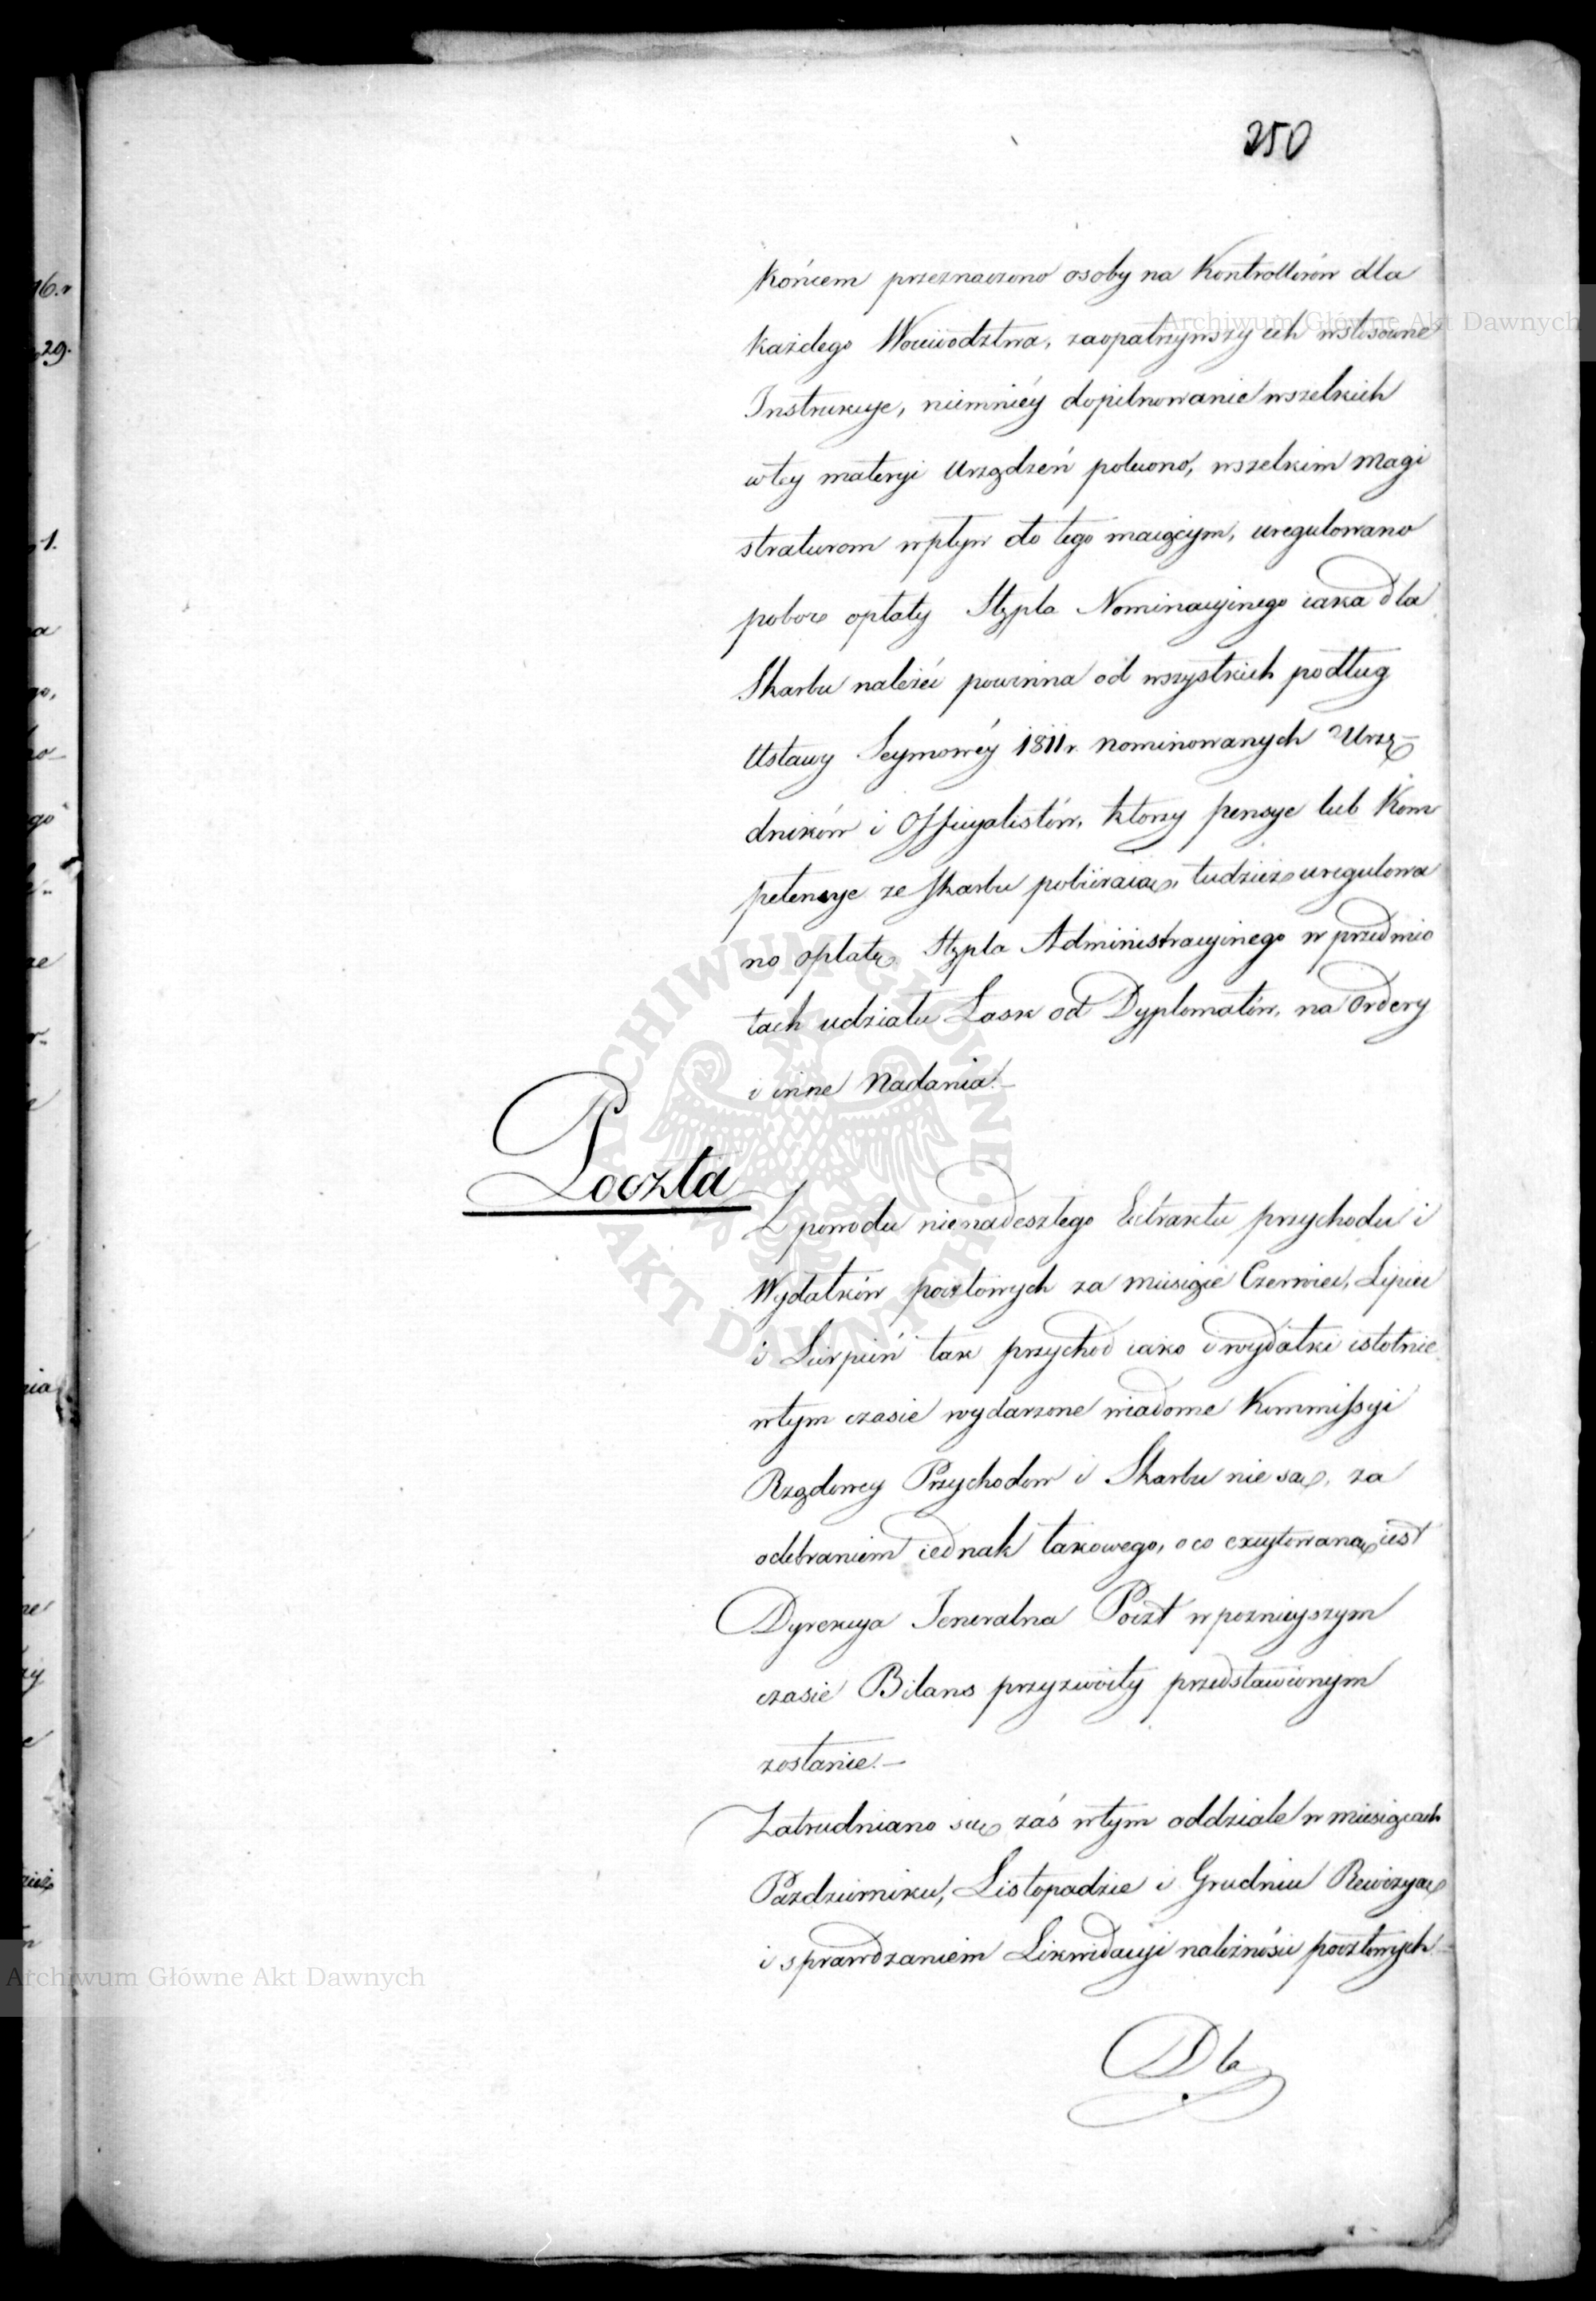 250
końcem przeznaczono osoby na Kontrollerów dla
każdego Woiewodztwa, zaopatrzywszy ich wstosowne
Instrukcye, niemniéy dopilnowanie wszelkich
wtey materyi Urządzeń polecono, wszelkim Magi
straturom wpływ do tego maiącym, uregulowano
pobor opłaty Stępla Nominacyinego iaka dla
Skarbu należéć powinna od wszystkich podług
Ustawy Seymowéy 1811 r. nominowanych Urzę-
dników i Officyalistów, którzy pensye lub Kom
petencye ze skarbu pobieraią, tudzież uregulowa
no opłatę Stępla Administracyinego w przedmio
tach udziału Łask od Dyplomatów, na Ordery
i inne Nadania.-
Poczta
Z powodu nienadeszłego Extraktu przychodu i
Wydatków pocztowych za miesiące Czerwiec, Lipiec
i Sierpień tak przychod iako i wydatki istotnie
wtym czasie wydarzone wiadome Kommissyi
Rządowey Przychodow i Skarbu nie są, za
odebraniem iednak takowego, o co excytowaną iest
Dyrekcya Jeneralna Poczt w pozniejszym
czasie Bilans przyzwoity przedstawionym
zostanie.-
Zatrudniano się zaś wtym oddziale w miesiącach
Pazdzierniku, Listopadzie i Grudniu Rewizyą
i sprawdzaniem Likwidacyi należności pocztowych
Dla
Archiwum Główne Akt Dawnych
Archiwum Główne Akt Dawnych
ARCHIWUM GŁÓWNE AKT DAWNYCH
16. r
29.
1.